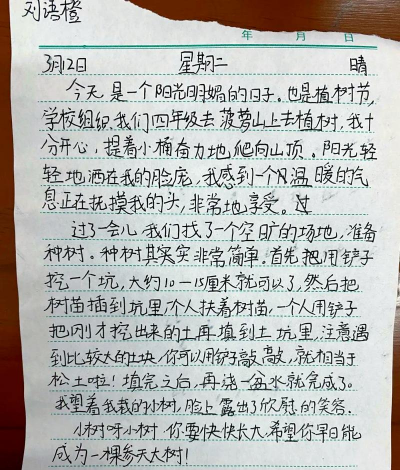 刘语橙
年 月 日
3月12日 星期二 晴
今天是一个阳光明媚的日子。也是植树节,
学校组织我们四年级去菠萝山上去植树,我十
分开心,提着小桶奋力地爬向山顶。阳光轻
轻地洒在我的脸庞,我感到一个风温暖的气
息正在抚摸我的头,非常地享受。过
过了一会儿我们找了一个空旷的场地,准备
种树。种树其实实非常简单。首先把用铲子
挖一个坑,大约10一15厘米就可以了,然后把
树苗插到坑里,个人扶着树苗,一个人用铲子
把刚才挖出来的土再填到土坑里,注意遇
到比较大的土块你可以用铲子敲敲,就相当于
松土啦!填完之后,再浇一盆水就完成了。
我望着我栽的小树,脸上露出了欣慰的笑容.
小树呀小树你要快快长大,希望你早日能
成为一棵参天大树!